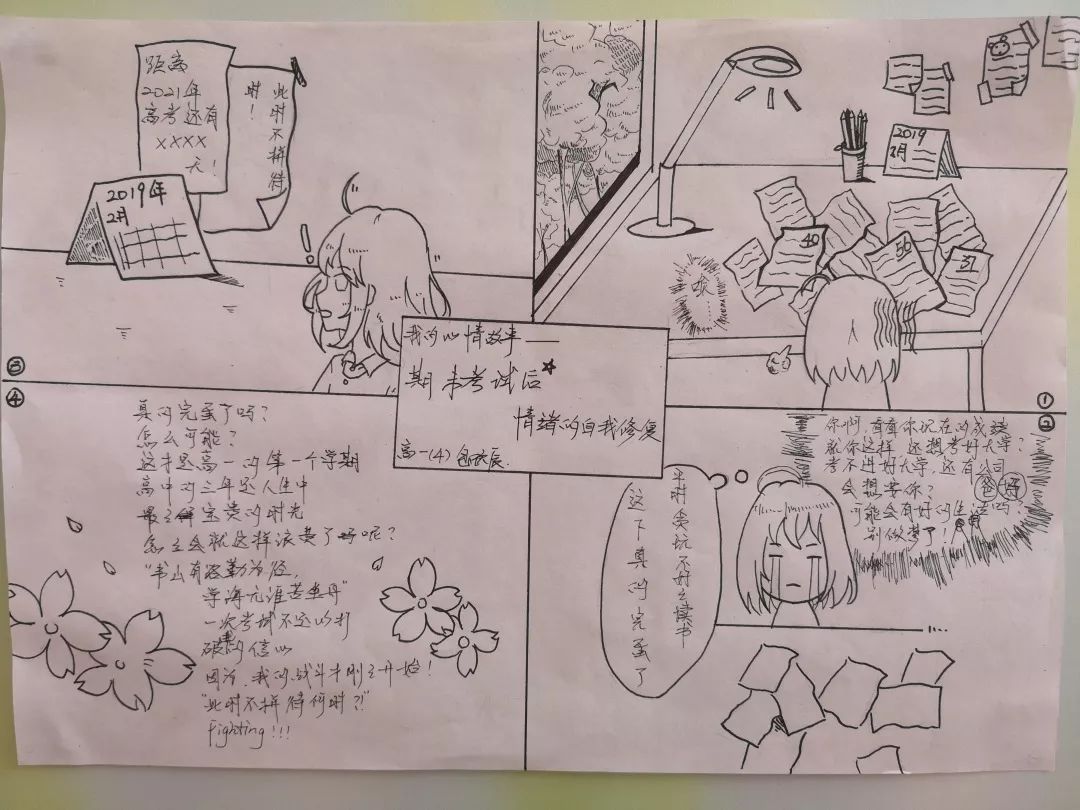 我的心情故事——
期末考试后
情绪的自我修复
高一(4)
①
2019
2月
40
50
31
唉
②
你啊,看看你现在的成绩
就你这样 还想考好大学?
考不进好大学,还有公司
会想要你?
可能会有好的生活吗?
别做梦了!
爸妈
平时贪玩不好好读书
这下真的完蛋了
③
距离
2021年
高考还有
××××
天!
此时不拼待
时!
2019年
2月
!
④
真的完蛋了吗?
怎么可能?
这才是高一的第一个学期
高中的三年是人生中
最宝贵的时光
怎么会就这样浪费了呢?
"书山有路勤为径,
学海无涯苦作舟"
一次考试不足以打
破我的信心
因为,我的战斗才刚刚开始!
"此时不拼待何时?!"
Fighting!!!